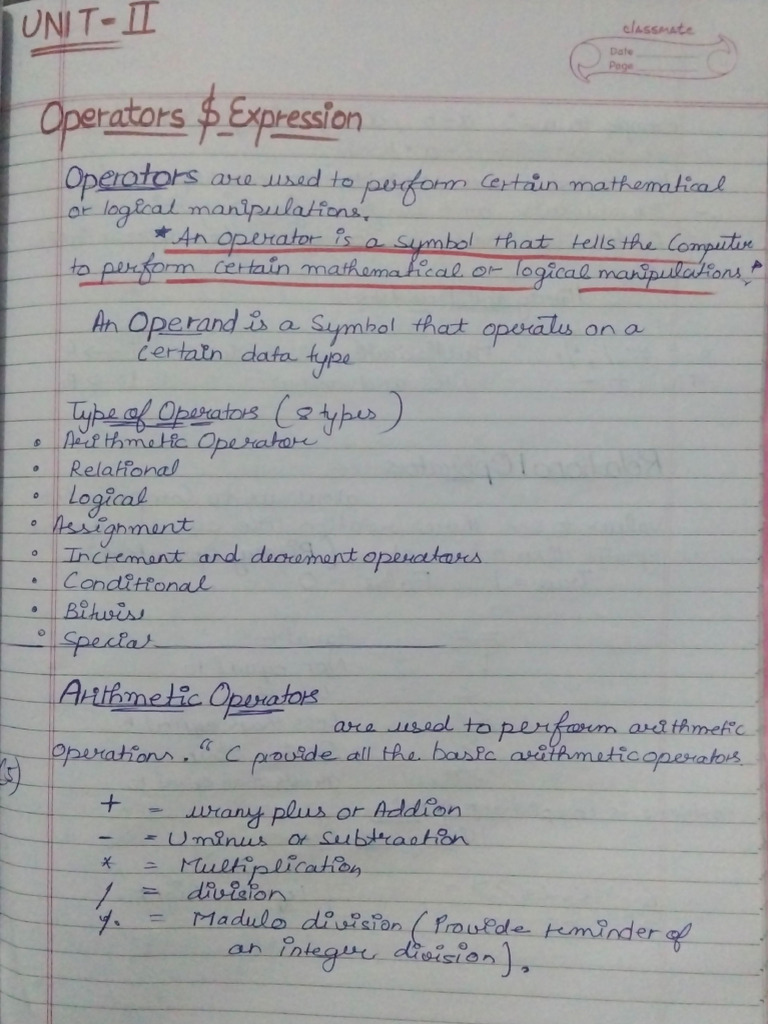 UNIT-II
classmate
Date
Page
Operators $ Expression
Operators are used to perform certain mathematical
or logical manipulations.
*An operator is a symbol that tells the Computer
to perform certain mathematical or logical manipulations.*
An Operand is a Symbol that operates on a
certain data type
Type of Operators (8 types)
• Arithmetic Operator
• Relational
• Logical
• Assignment
• Increment and decrement operators
• Conditional
• Bitwise
• Special
Arithmetic Operators
are used to perform arithmetic
operations. " C provide all the basic arithmetic operators.
(5)
+ = urany plus or Addion
- = Uminus or Subtraction
* = Multiplication
/ = division
% = Madulo division (Provide reminder of
an integer division).